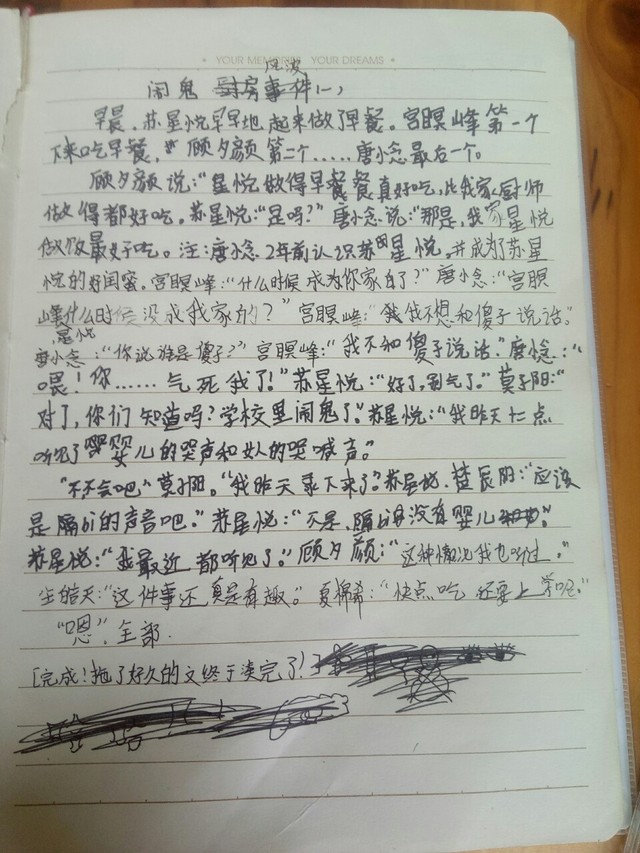 YOUR MEMORIES YOUR DREAMS
风波
闹鬼 厨房事件(一)
早晨,苏星悦早早地起来做了早餐。宫暝峰第一个
下来吃早餐,顾夕颜第二个……唐小念最后一个。
顾夕颜说:“星悦做得早餐餐真好吃,比我家厨师
做得都好吃。苏星悦:“是吗?”唐小念说:“那是,我家星悦
做饭最好吃。注:唐小念2年前认识苏星悦,并成为了苏星
悦的好闺蜜。宫暝峰:“什么时候成为你家的了?”唐小念:“宫暝
峰什么时候没成我家的?”宫暝峰:“我不想和傻子说话。”
唐小念:“你说谁是傻子?”宫暝峰:“我不和傻子说话。”唐小念:“
喂!你……气死我了!”苏星悦:“好了,别气了。”莫子阳:“
对了,你们知道吗?学校里闹鬼了。”苏星悦:“我昨天十二点
听见了婴儿的哭声和女人的哭喊声。”
“不不会吧”莫子阳。“我昨天录下来了。”苏星悦。楚辰阳:“应该
是隔壁的声音吧。”苏星悦:“不是,隔壁没有婴儿。”
苏星悦:“我最近都听见了。”顾夕颜:“这种情况我也听过。”
皓天:“这件事还真是有趣。”夏:“快点吃还要上学呢。”
“嗯”全部.
[完成!拖了好久的文终于凑完了!]